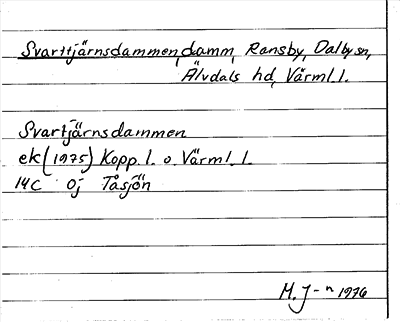 Svarttjärnsdammen, damm, Ransby, Dalby sn,
Älvdals hd, Värml. l.
Svartjärnsdammen
ek (1975) Kopp. l. o. Värml. l.
14C Oj Tåsjön
M. J-n 1976